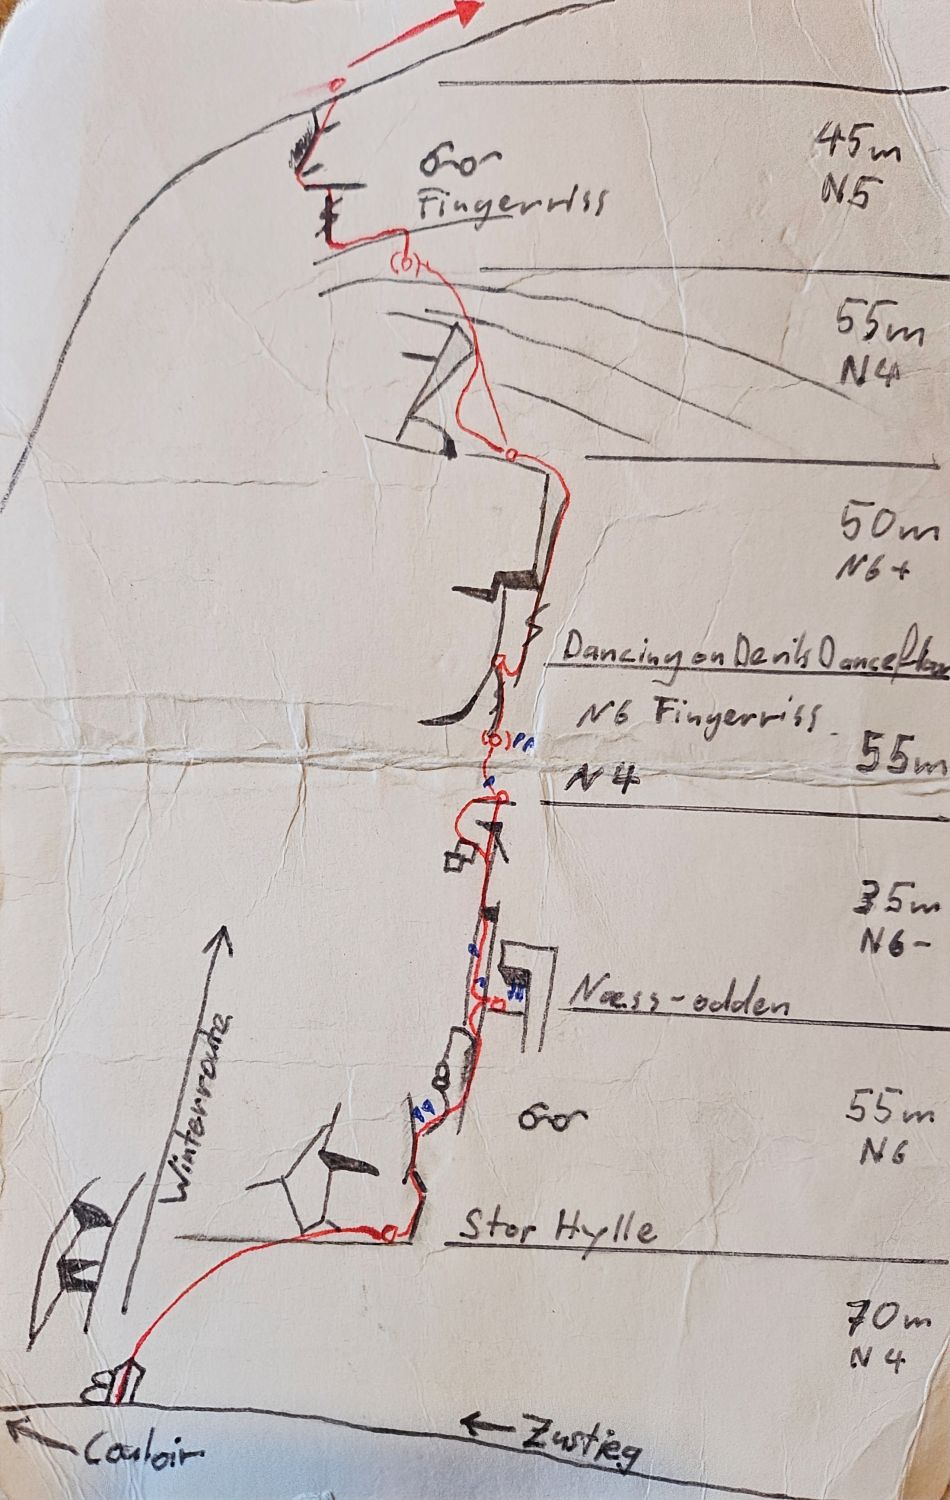 45m
N5
Fingerriss
55m
N4
50m
N6+
Dancing on Devils Dancefloor
N6 Fingerriss
55m
N4
35m
N6-
Næss-odden
Winterroute
55m
N6
Stor Hylle
70m
N4
Couloir
Zustieg